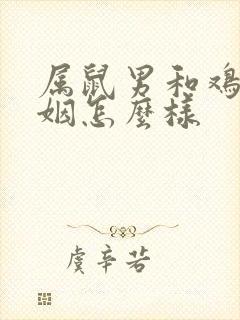 属鼠男和鸡
姻怎麽样
虞辛若